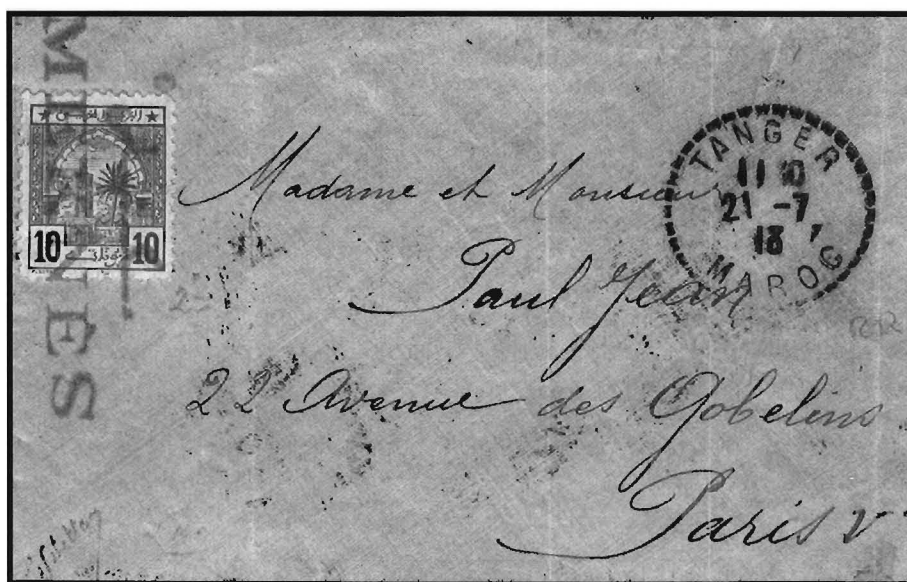 10 10
TANGER
11 10
21 -7
13
MAROC
Madame et Monsieur
Paul Jean
22 Avenue des Gobelins
Paris V